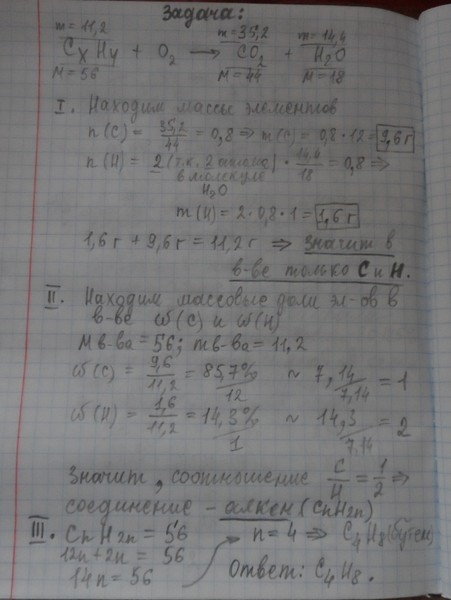 Задача:
m=11,2 m=35,2 m=14,4
CxHy + O2 → CO2 + H2O
M=56 M=44 M=18
I. Находим массы элементов
n(C) = 35,2/44 = 0,8 ⇒ m(C) = 0,8·12 = 9,6 г
n(H) = 2 (т.к. 2 атома в молекуле H2O) · 14,4/18 = 0,8 ⇒
m(H) = 2·0,8·1 = 1,6 г
1,6 г + 9,6 г = 11,2 г ⇒ значит в
в-ве только C и H.
II. Находим массовые доли эл-ов в
в-ве ω(C) и ω(H)
M в-ва = 56; m в-ва = 11,2
ω(C) = 9,6/11,2 = 85,7%/12 ~ 7,14/7,14 = 1
ω(H) = 1,6/11,2 = 14,3%/1 ~ 14,3/7,14 = 2
Значит, соотношение C/H = 1/2 ⇒
соединение - алкен (CnH2n)
III. CnH2n = 56 n = 4 ⇒ C4H8 (бутен)
12n+2n = 56
14n = 56 Ответ: C4H8.